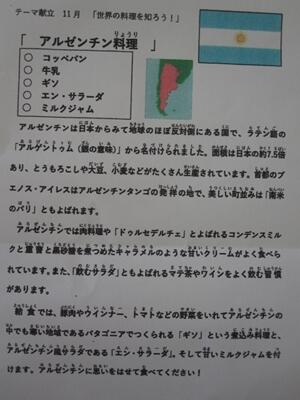 テーマ献立　11月　「世界の料理を知ろう！」
「　アルゼンチン料理　」
○　コッペパン
○　牛乳
○　ギソ
○　エン・サラーダ
○　ミルクジャム
アルゼンチンは日本からみて地球のほぼ反対側にある国で、ラテン語の
「アルゲントゥム（銀の意味）」から名付けられました。面積は日本の約7.5倍
あり、とうもろこしや大豆、小麦などがたくさん生産されています。首都のブ
エノス・アイレスはアルゼンチンタンゴの発祥の地で、美しい町並みは「南米
のパリ」ともよばれます。
アルゼンチンでは肉料理や「ドゥルセデルチェ」とよばれるコンデンスミル
クと重曹と黒砂糖を煮つめたキャラメルのような甘いクリームがよく食べら
れています。また、「飲むサラダ」ともよばれるマテ茶やワインをよく飲む習慣
があります。
給食では、豚肉やウインナー、トマトなどの野菜をいれてアルゼンチンの
中でも寒い地域であるパタゴニアでつくられる「ギソ」という煮込み料理と、
アルゼンチン風サラダである「エン・サラーダ」。そして甘いミルクジャムを付
けます。アルゼンチンに思いをはせて食べてください！